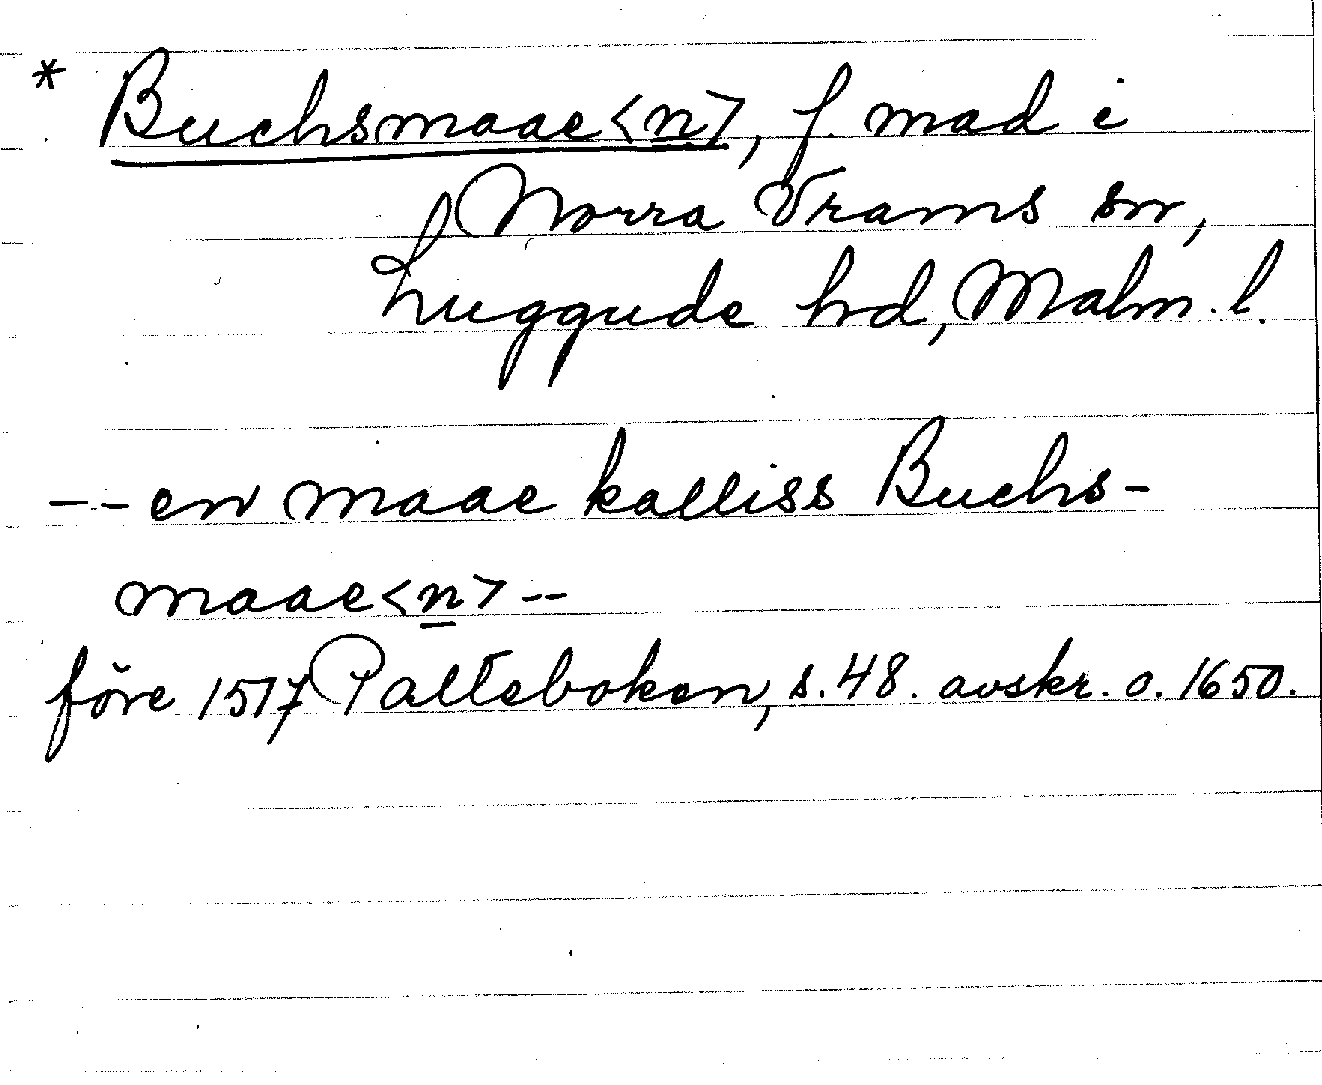 * Buchsmaae<n>, f. mad i
Norra Vrams sn,
Luggude hd, Malm. l.
-- en maae kalliss Buchs-
maae<n> --
före 1517 Palteboken, s. 48. avskr. o. 1650.